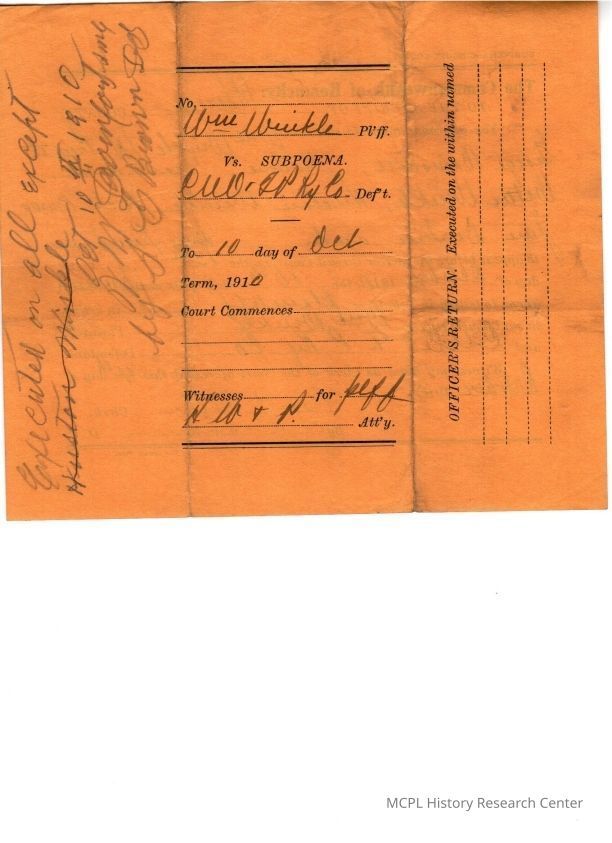 Executed on all except
Huston Winkle
Oct 10 1910
By Brown DS
No,
Wm Winkle Pl'ff.
Vs. SUBPOENA.
CNO & TP Ry Co Def't.
To 10 day of Oct
Term, 1910
Court Commences
Witnesses for plff
Att'y.
OFFICER'S RETURN. Executed on the within named
MCPL History Research Center